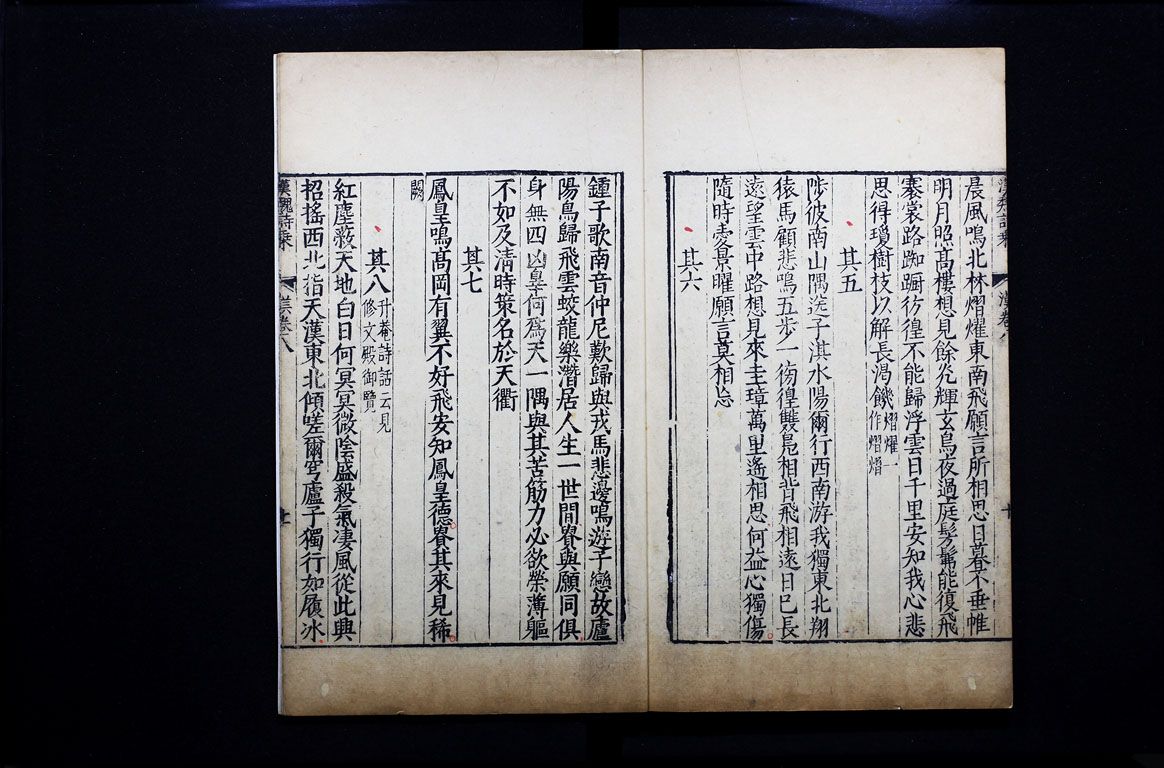 晨風鳴北林熠燿東南飛願言所相思日暮不垂帷
明月照高樓想見餘光輝玄鳥夜過庭髣髴能復飛
褰裳路踟蹰彷徨不能歸浮雲日千里安知我心悲
思得瓊樹枝以解長渴饑熠燿一作熠熠
其五
陟彼南山隅送子淇水陽爾行西南游我獨東北翔
轅馬顧悲鳴五步一徬徨雙鳧相背飛相遠日已長
遠望雲中路想見來圭璋萬里遙相思何益心獨傷
隨時愛景曜願言莫相忘
其六
鍾子歌南音仲尼歎歸與戎馬悲邊鳴游子戀故廬
陽鳥歸飛雲蛟龍樂潛居人生一世間貴與願同俱
身無四凶罪何爲天一隅與其苦筋力必欲榮薄軀
不如及清時策名於天衢
其七
鳳皇鳴高岡有翼不好飛安知鳳皇德貴其來見稀
闕
其八 升菴詩話云見修文殿御覽
紅塵蔽天地白日何冥冥微陰盛殺氣淒風從此興
招搖西北指天漢東北傾嗟爾穹廬子獨行如履冰
漢魏詩乘
漢卷八